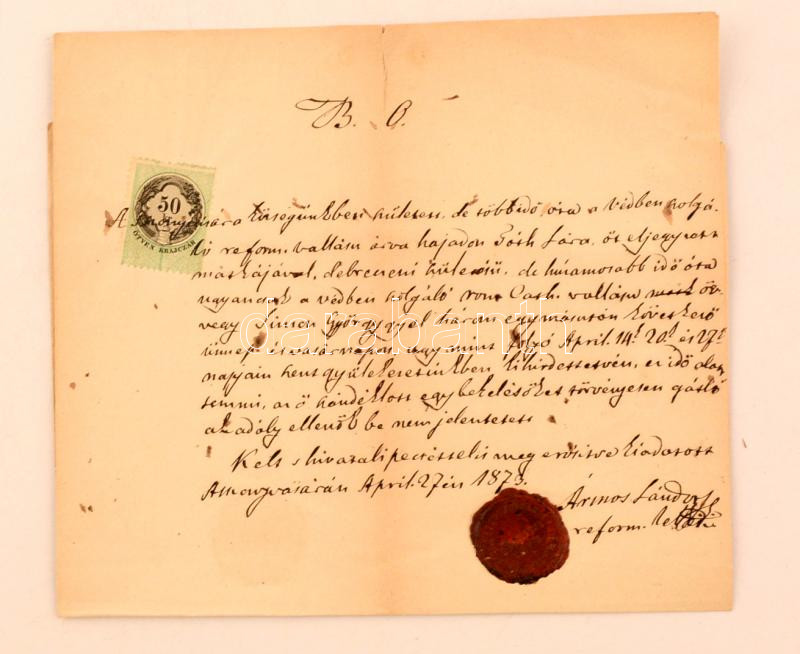 B. O.
50
ÖTVEN KRAJCZÁR
születess, de több idő óta a Védben szolgá-
ló reform. vallásu árva hajadon Tóth Sára, őt eljegyzett
mátkájával, debreceni születésü, de huzamosabb idő óta
ugyancsak a védben szolgáló rom. Cath. vallásu öz-
vegy Simon György gyel három egymásután következő
ünnep és vasárnapon, ugymint folyó April. 14k 20k és 27k
napjain szent gyülekezetünkben kihirdettetvén, ez idő alatt
semmi, az ő szándéklott egybekelésöket törvényesen gátló
akadály ellenök be nem jelentetett
Kelt s hivatali pecséttel is meg erősitve kiadatott
April. 27én 1873.
Ármos Sándor
reform.
darabanth